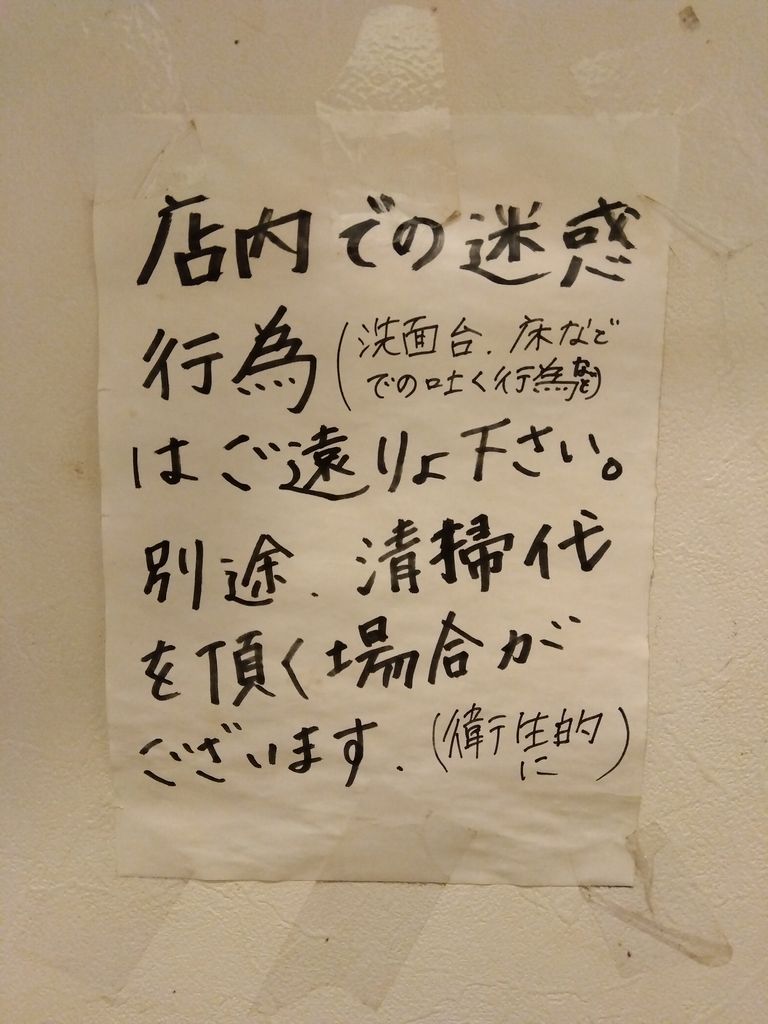 店内での迷惑
行為(洗面台、床などで
での吐く行為など)
はご遠りょ下さい。
別途、清掃代
を頂く場合が
ございます、(衛生的
に)